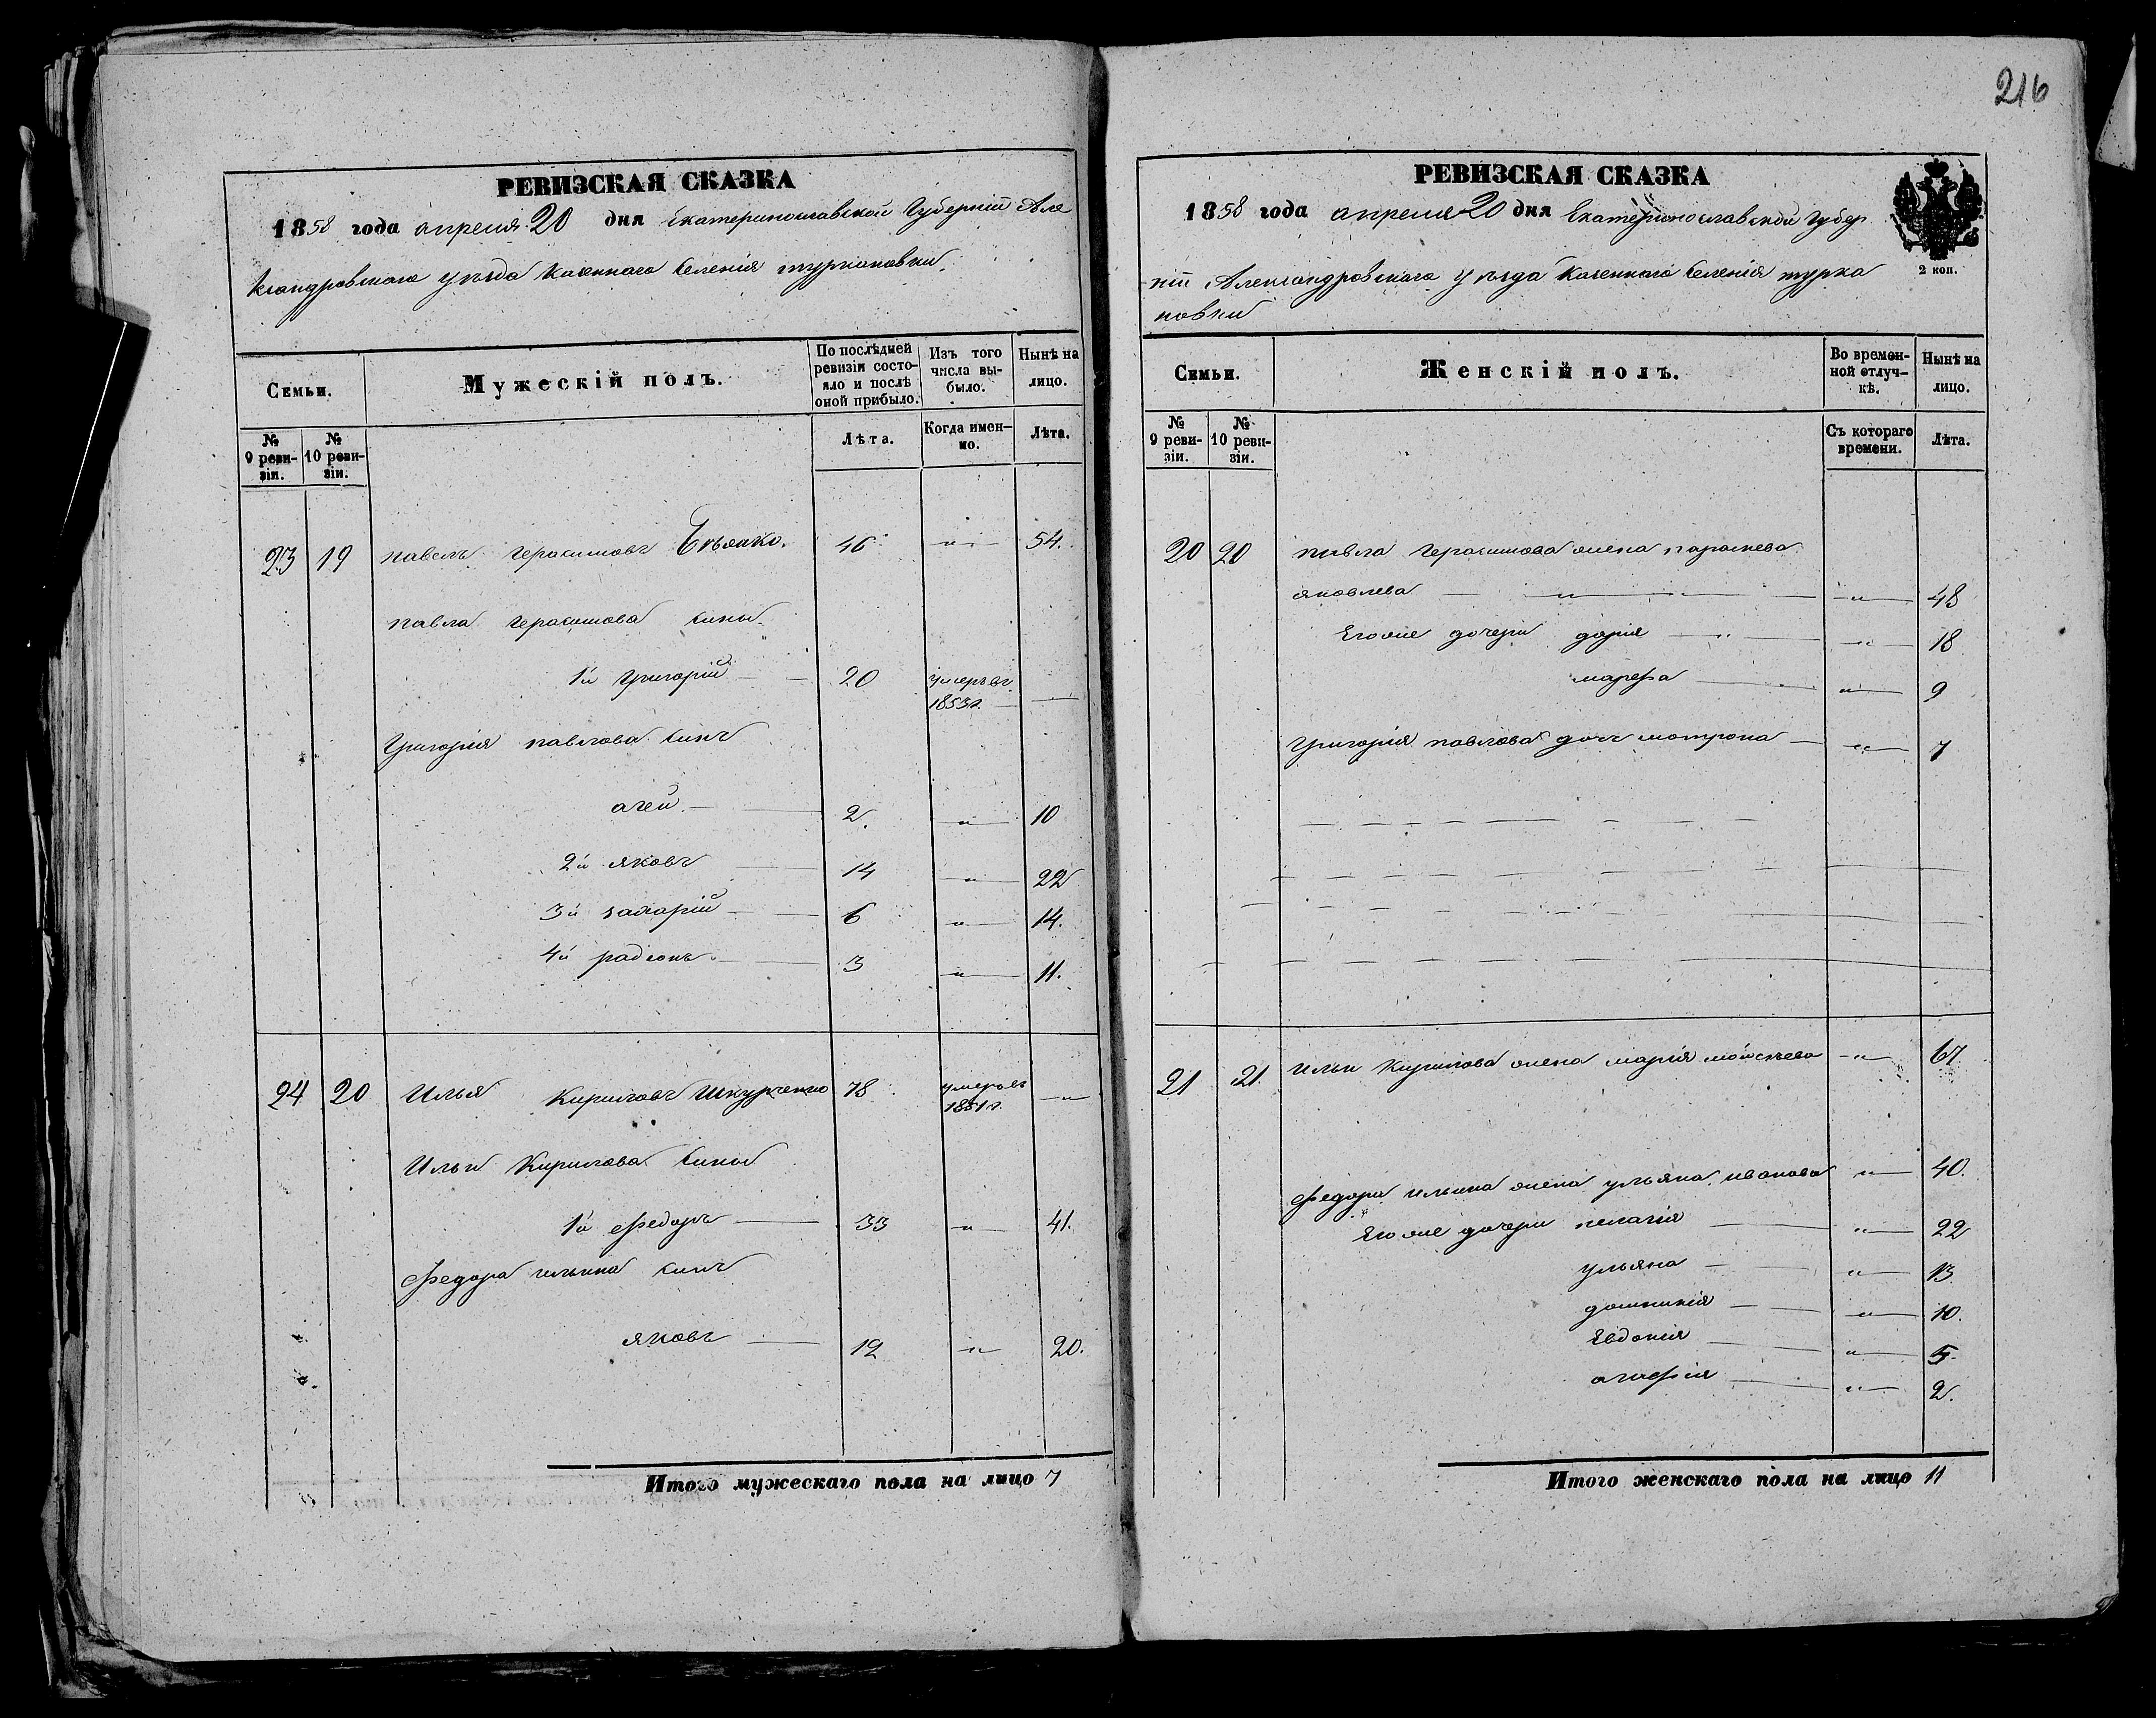 216
РЕВИЗСКАЯ СКАЗКА
1858 года апреля 20 дня Екатеринославской Губерніи Але
ксандровскаго уѣзда Казеннаго Селенія туркановки
Семьи.
Мужескій полъ.
По послѣдней ревизіи состояло и послѣ оной прибыло.
Изъ того числа выбыло.
Нынѣ на лицо.
№ 9 ревизіи.
№ 10 ревизіи.
Лѣта.
Когда именно.
Лѣта.
23 19 павелъ герасимовъ 46 " 54.
павла герасимова сыны
1й григорій 20 умеръ въ 1853г.
Григорія павлова сынъ
агей 2. " 10
2й яковъ 14 " 22
3й захарій 6 " 14.
4й радіонъ 3 " 11.
24 20 Илья Кириловъ Шкурченко 78 умеръ въ 1851г. "
Ильи Кирилова сыны
1й федоръ 33 " 41.
федора ильина сынъ
яковъ 12 " 20.
Итого мужескаго пола на лицо 7
РЕВИЗСКАЯ СКАЗКА
1858 года апреля 20 дня Екатеринославской Губер
ніи Александровскаго уѣзда Казеннаго Селенія турка
новки
2 коп.
Семьи.
Женскій полъ.
Во временной отлучкѣ.
Нынѣ на лицо.
№ 9 ревизіи.
№ 10 ревизіи.
Съ котораго времени.
Лѣта.
20 20 павла Герасимова жена параскева
яковлева " " 48
Егоже дочери дарія " " 18
марефа " 9
григорія павлова дочь мотрона " 7
21 21. Ильи Кирилова жена марія мойсѣева " 67
федора ильина жена ульяна иванова " 40.
Егоже дочери пелагія " 22
ульяна " 13
домникія " 10.
Евдокія " 5.
агафія " 2.
Итого женскаго пола на лицо 11